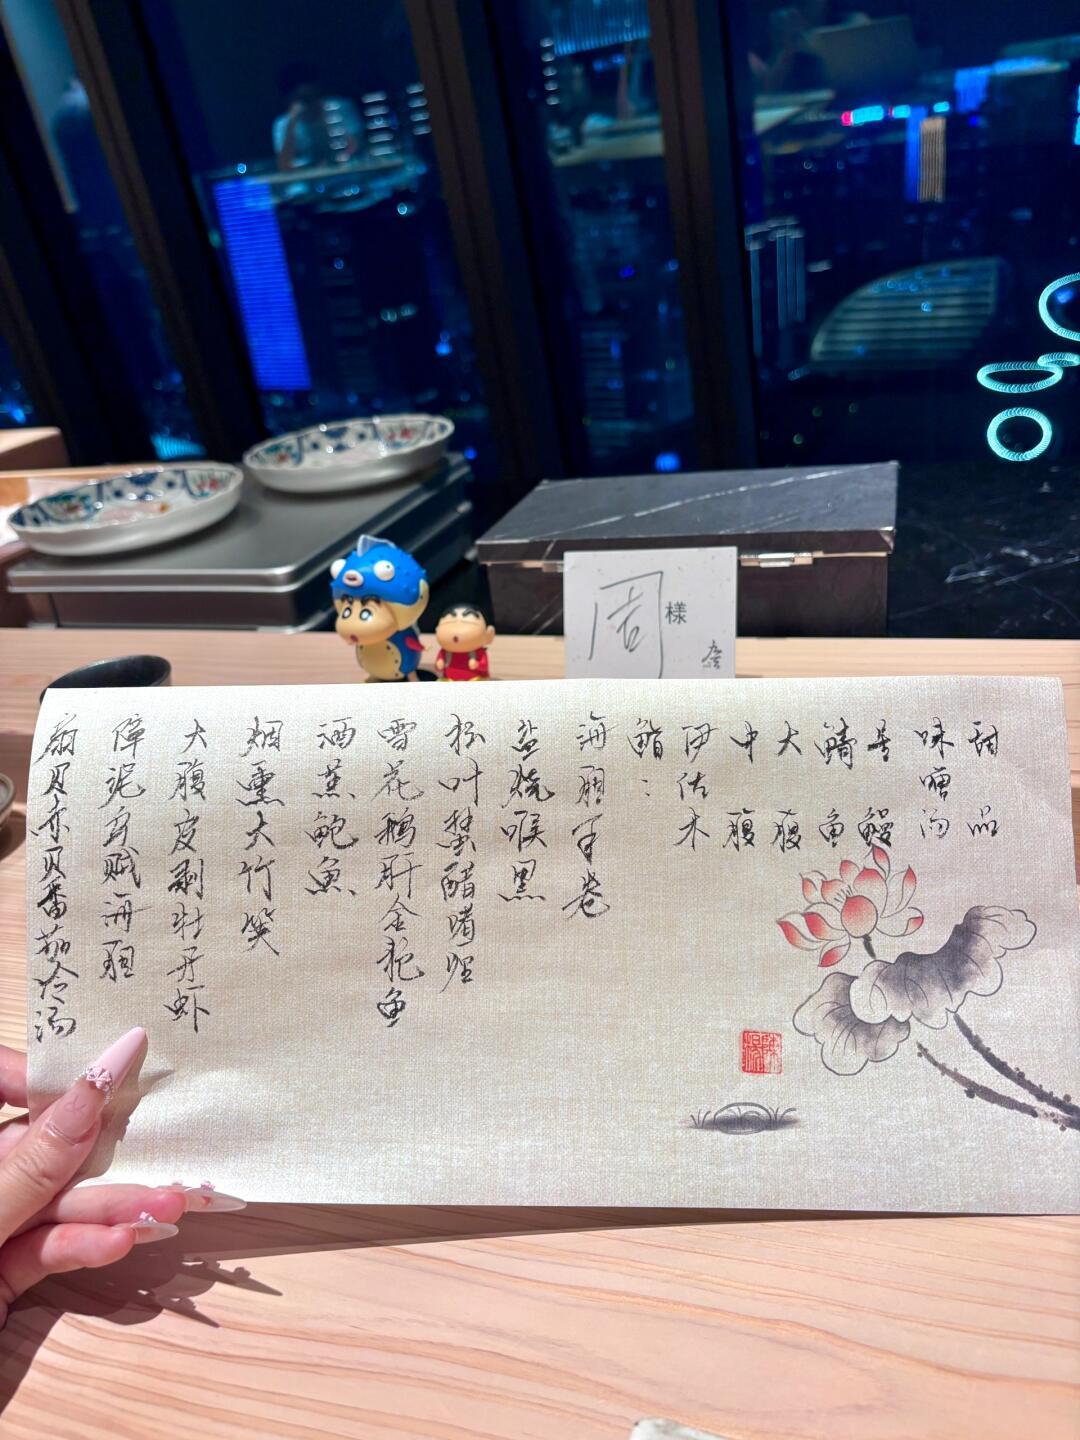 周
様
扇贝赤贝番茄冷汤
障泥乌贼海胆
大腹皮剥牡丹虾
烟熏大竹笑
酒蒸鲍鱼
雪花鹅肝金枪鱼
松叶蟹醋啫喱
盐烧喉黑
海胆手卷
鮨:
伊佐木
中腹
大腹
鲭鱼
星鳗
味噌汤
甜品